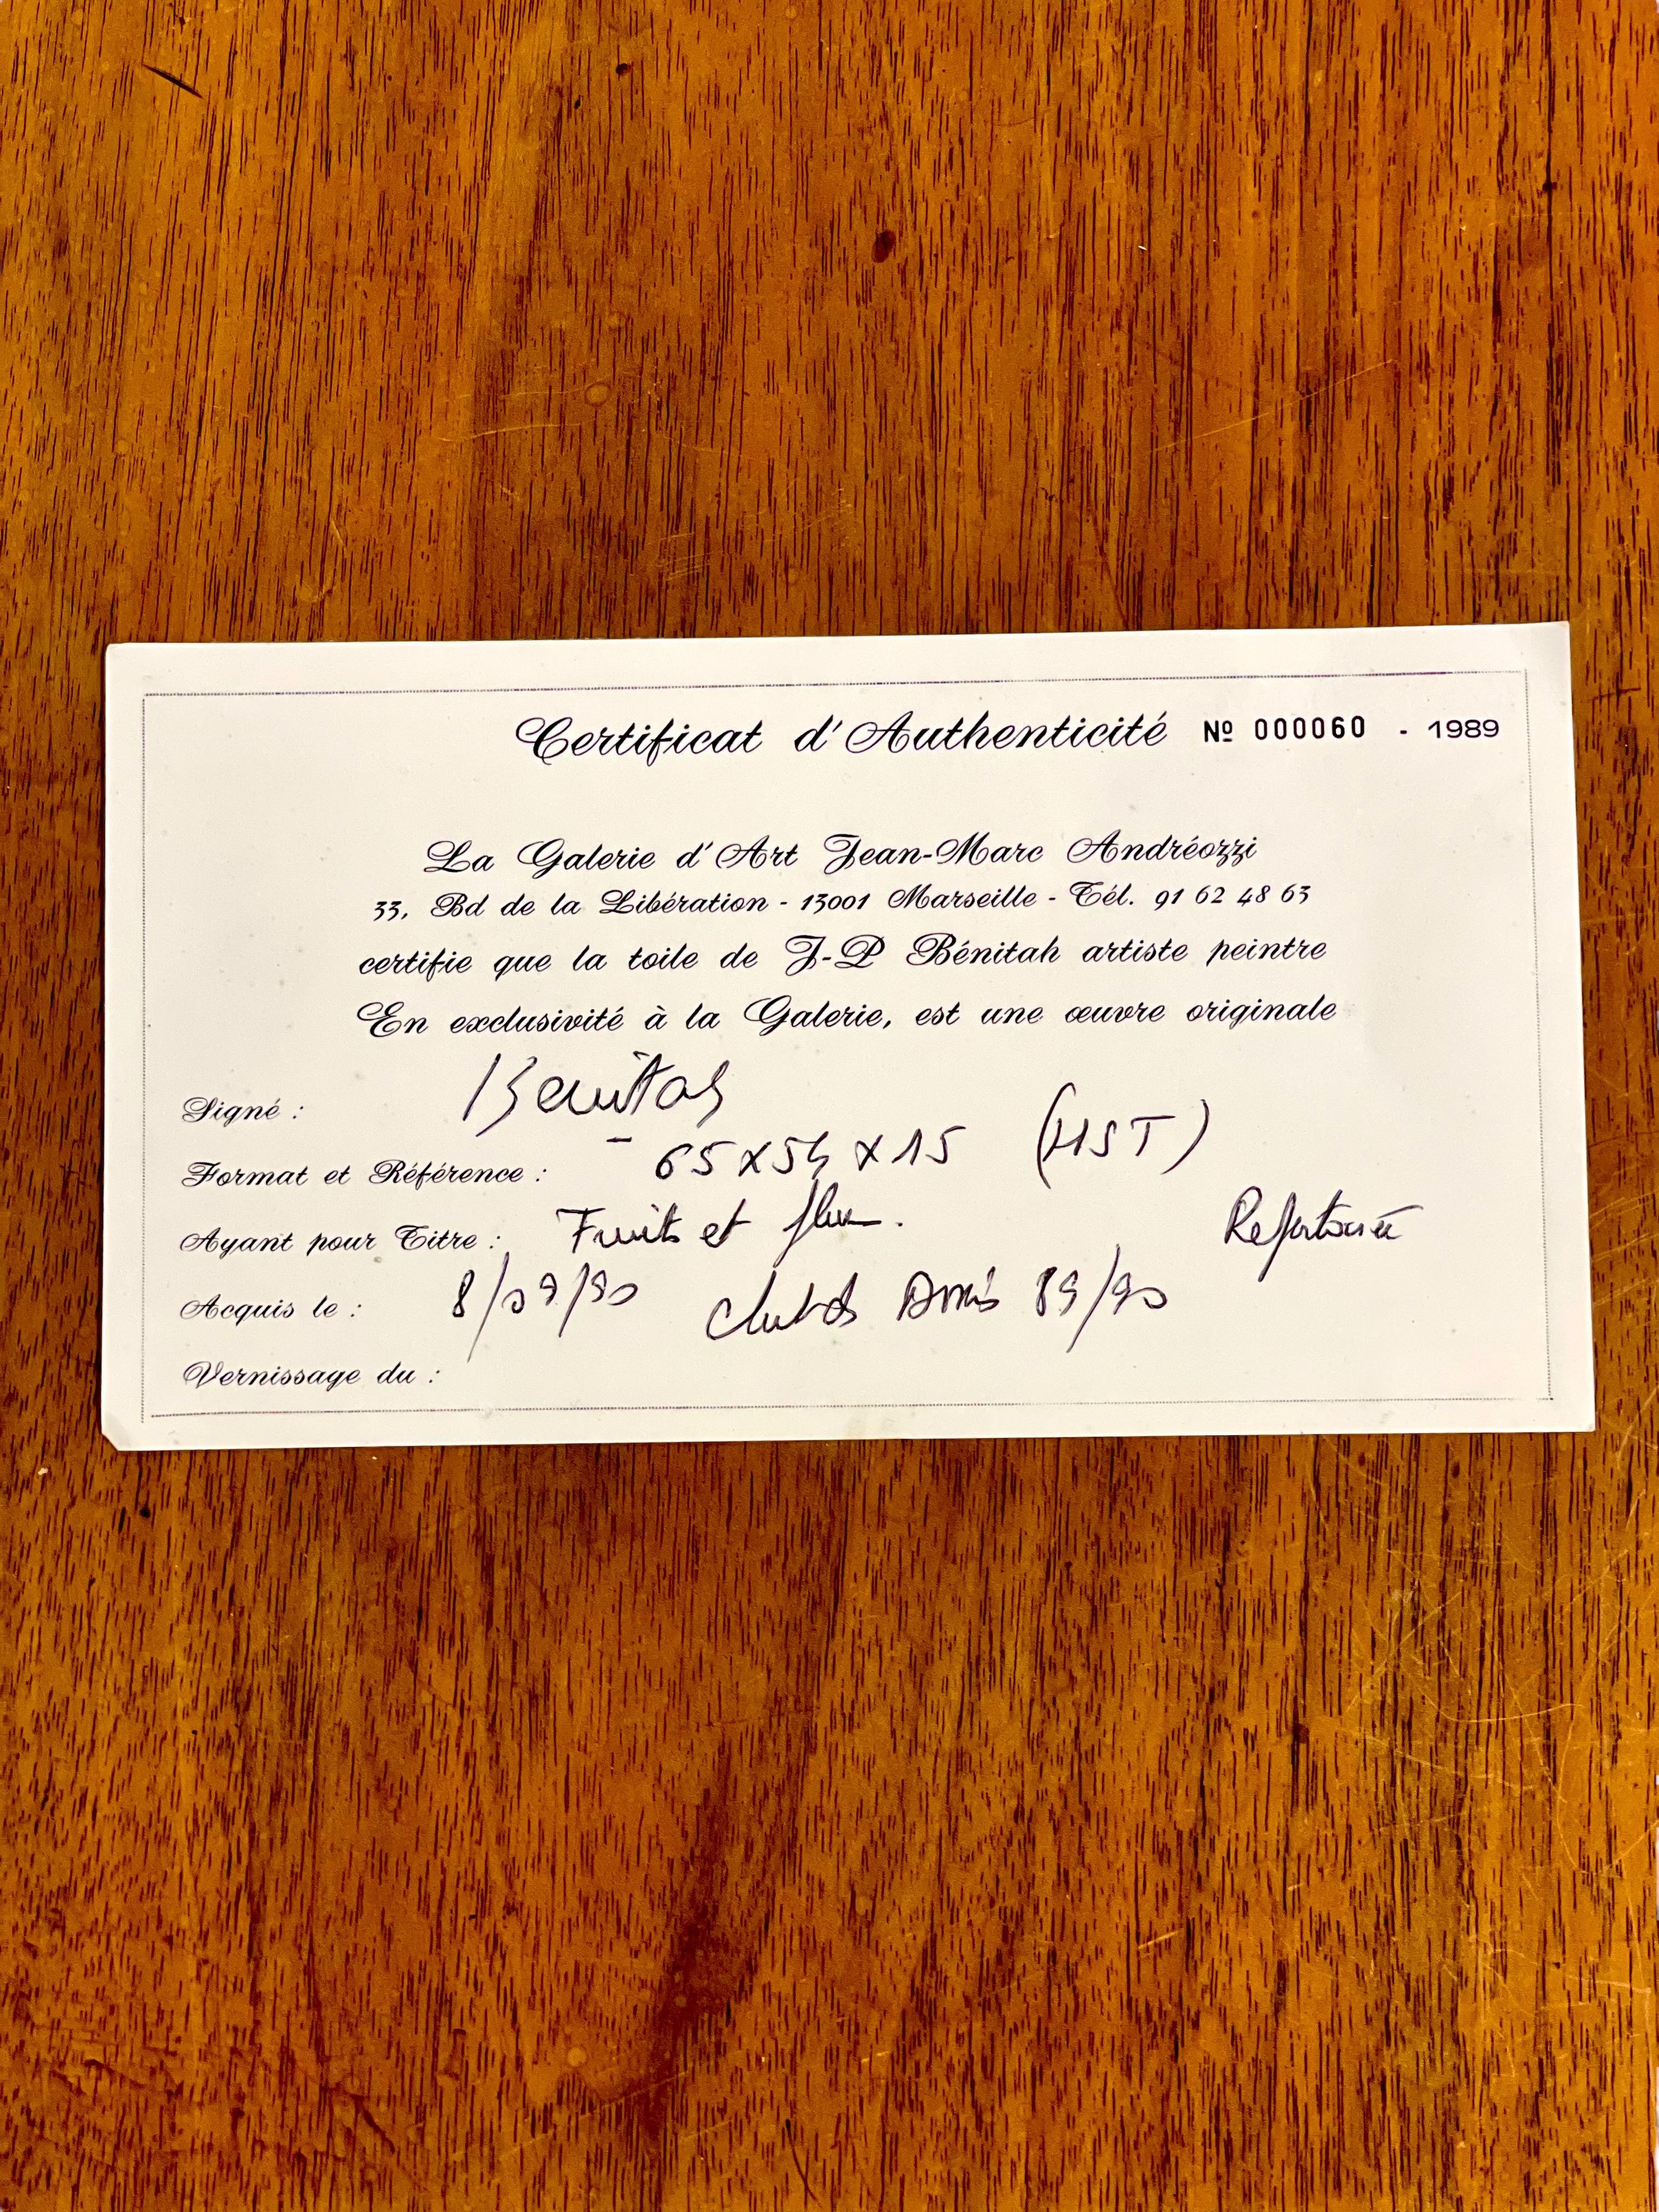 Certificat d'Authenticité Nº 000060 - 1989
La Galerie d'Art Jean-Marc Andréozzi
33, Bd de la Libération - 13001 Marseille - Tél. 91 62 48 63
certifie que la toile de J-P Bénitah artiste peintre
En exclusivité à la Galerie, est une œuvre originale
Signé : Benitah
Format et Référence : 65 x 54 x 15 (HST)
Ayant pour Titre : Fruits et
Acquis le : 8/09/90 Amis 89/90
Vernissage du :